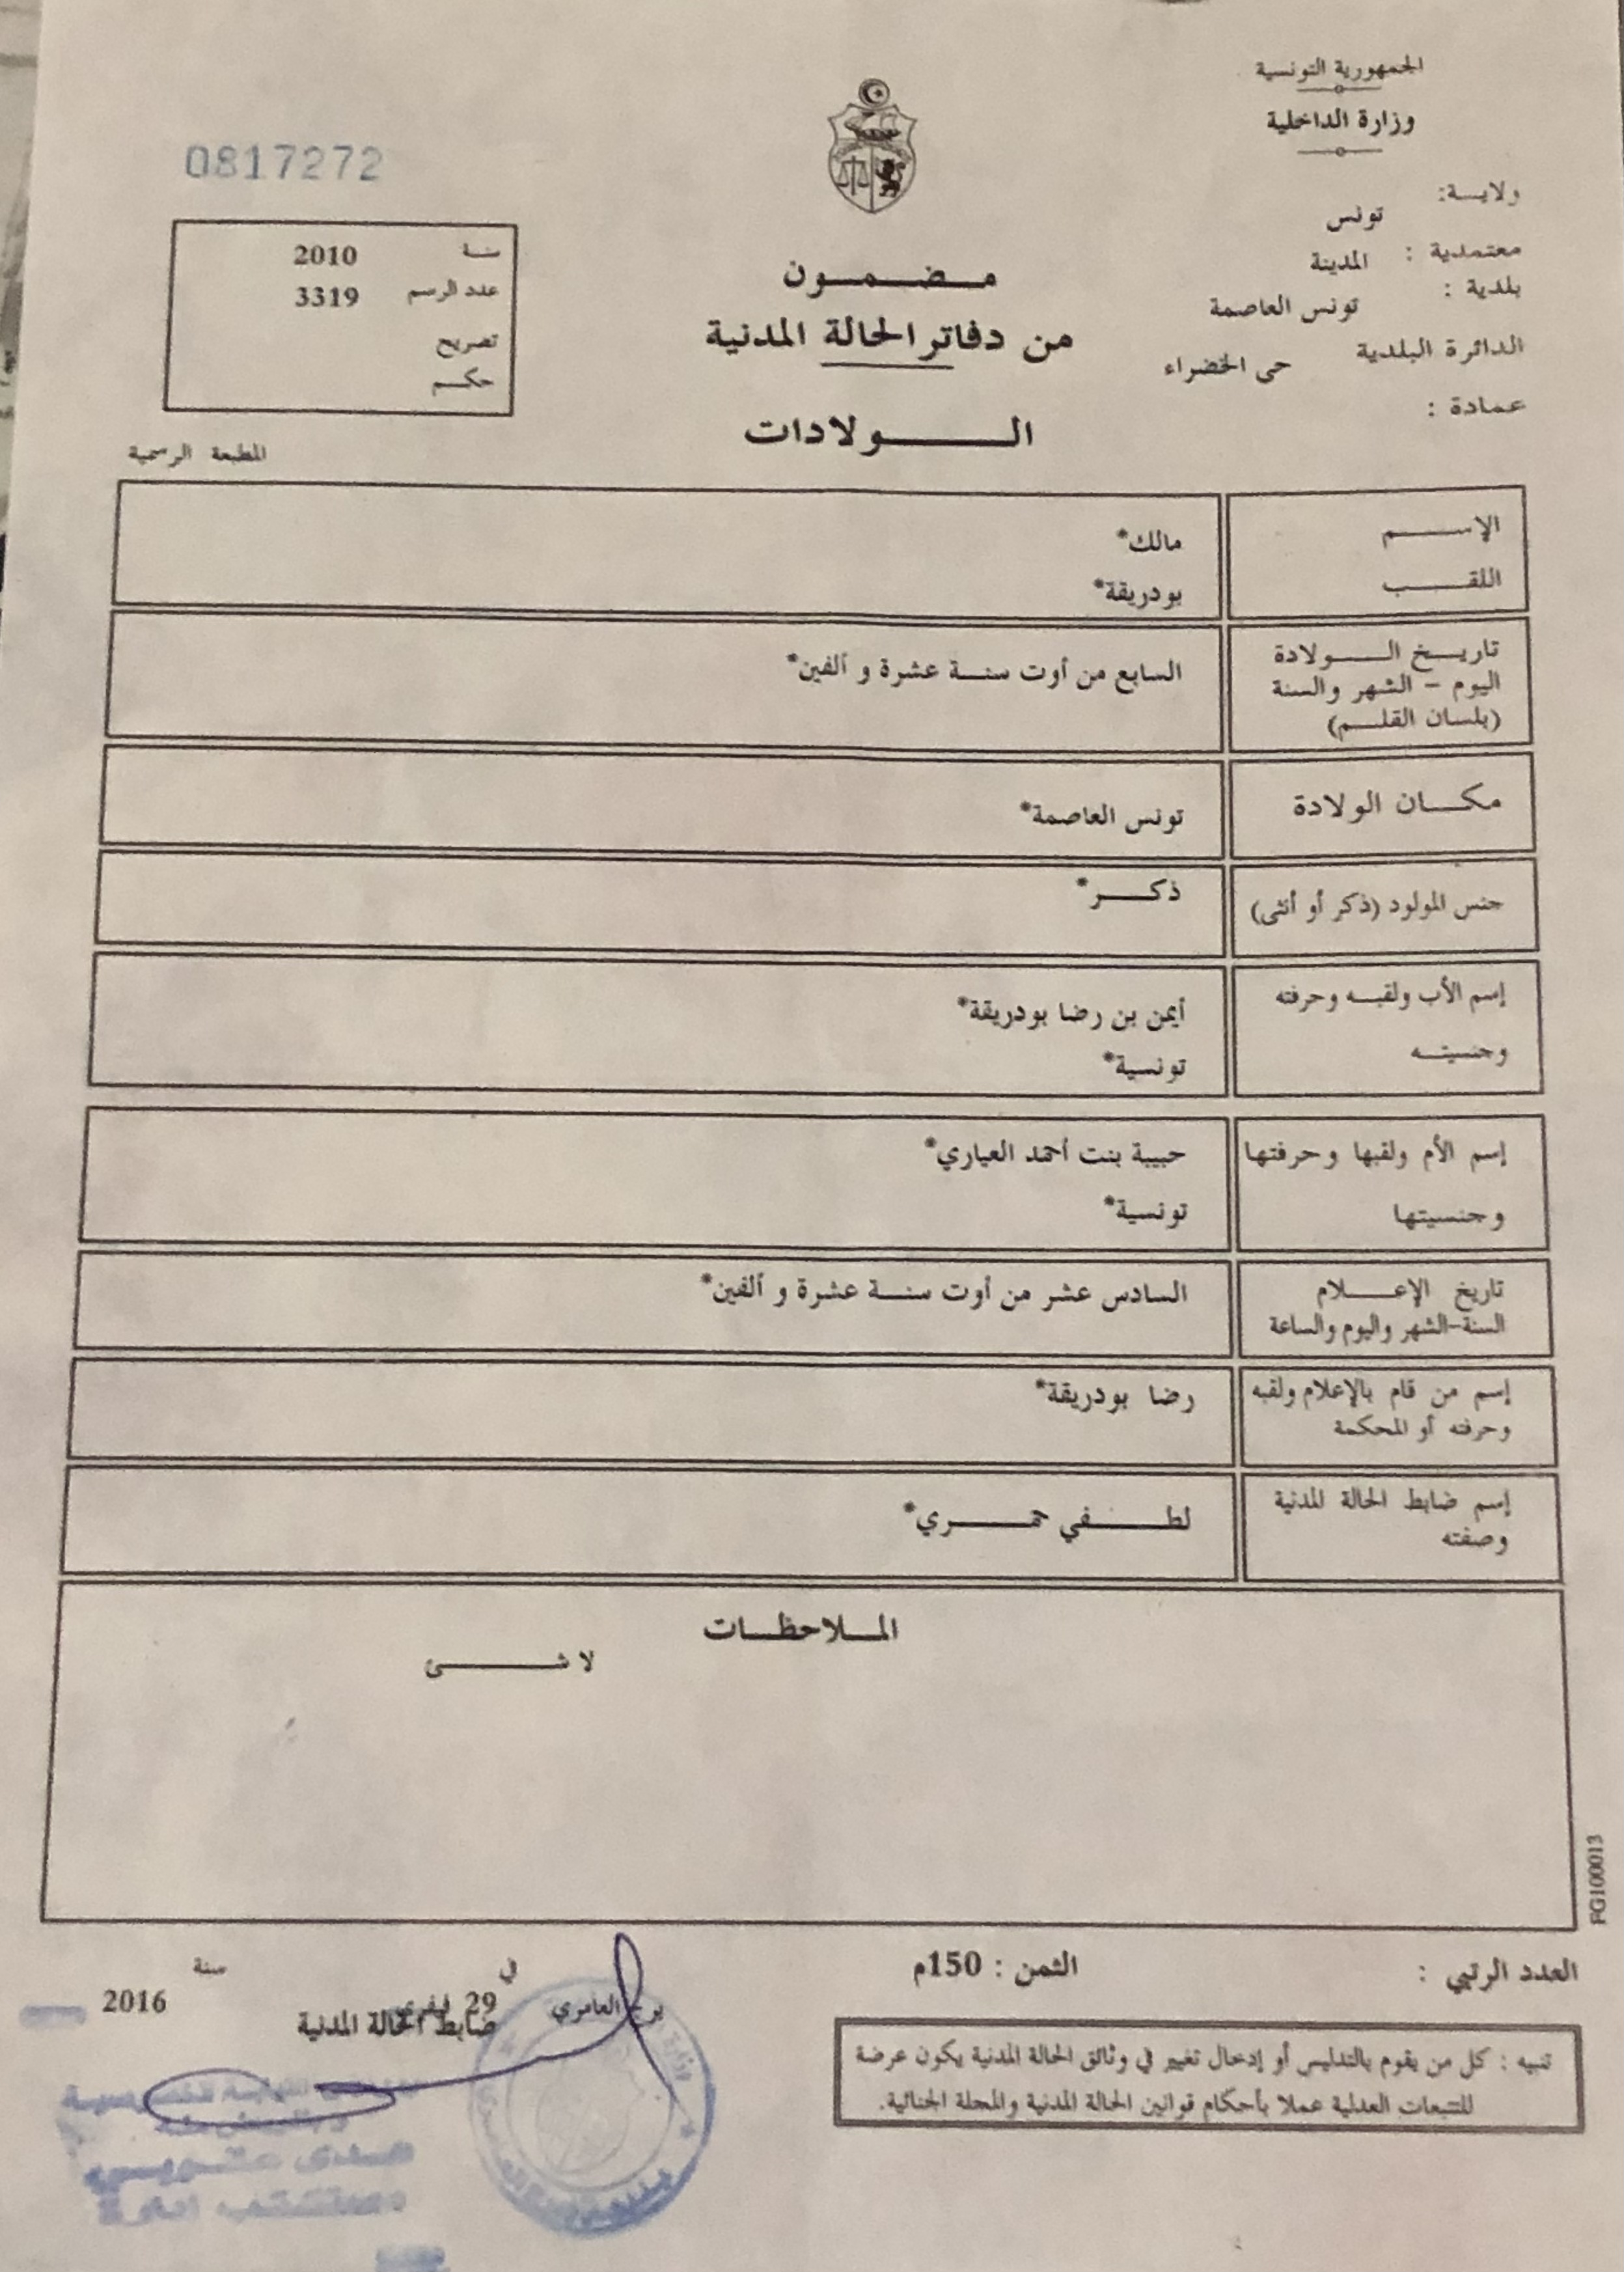 الجمهورية التونسية
وزارة الداخلية
ولايـــة: تونس
معتمدية : المدينة
بلدية : تونس العاصمة
الدائرة البلدية حى الخضراء
عمادة :
مـضـمـون
من دفاتر الحالة المدنية
الـــولادات
0817272
سنـة 2010
عدد الرسم 3319
تصريح
حكـم
المطبعة الرسمية
الإســـم مالك*
اللقـــب بودريقة*
تاريــخ الـــولادة
اليوم – الشهر والسنة
(بلسان القلــم)
السابع من أوت سنــة عشرة و ألفين*
مكـــان الولادة تونس العاصمة*
جنس المولود (ذكر أو أنثى) ذكـــر*
إسم الأب ولقبــه وحرفته أيمن بن رضا بودريقة*
وجنسيتــه تونسية*
إسم الأم ولقبها وحرفتها حبيبة بنت أحمد العياري*
وجنسيتها تونسية*
تاريخ الإعـــلام
السنة-الشهر واليوم والساعة
السادس عشر من أوت سنــة عشرة و ألفين*
إسم من قام بالإعلام ولقبه
وحرفته أو المحكمة
رضا بودريقة*
إسم ضابط الحالة المدنية
وصفته
لطـــفي حمـــري*
المــلاحظــات
لا شـــئ
FG100013
العدد الرتبي :
الثمن : 150م
برج العامري في 29 فيفري سنة 2016
ضابط الحالة المدنية
تنبيه : كل من يقوم بالتدليس أو إدخال تغيير في وثائق الحالة المدنية يكون عرضة
للتتبعات العدلية عملا بأحكام قوانين الحالة المدنية والمجلة الجنائية.